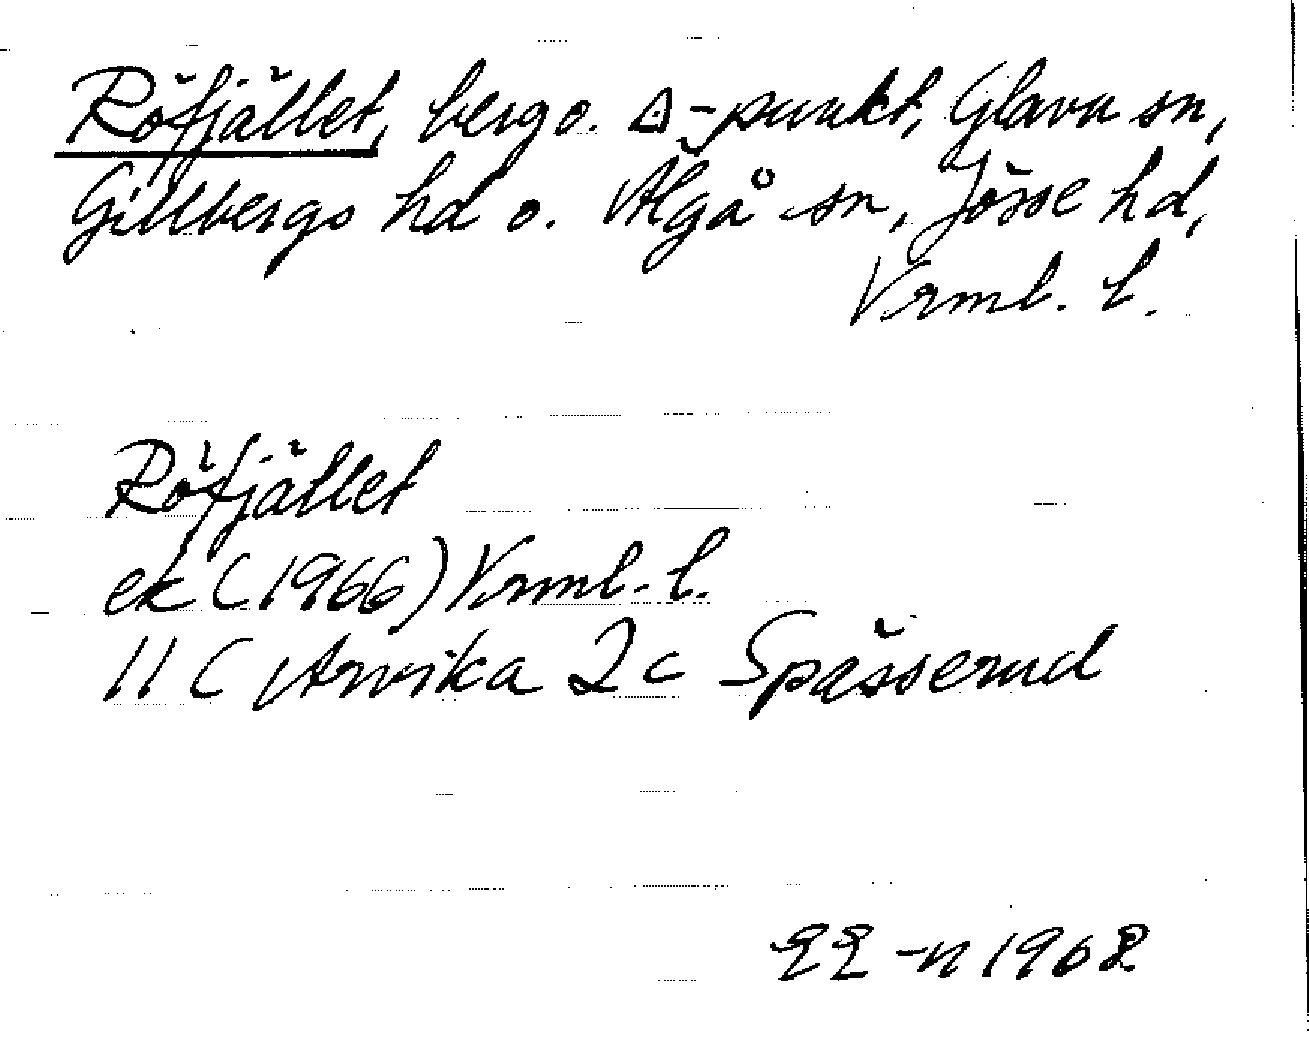 Röfjället, berg o. △-punkt, Glava sn,
Gillbergs hd o. Älgå sn, Jösse hd,
Vrml. l.
Röfjället
ek (1966) Vrml. l.
11 C Arvika 2 c Spässerud
-n 196